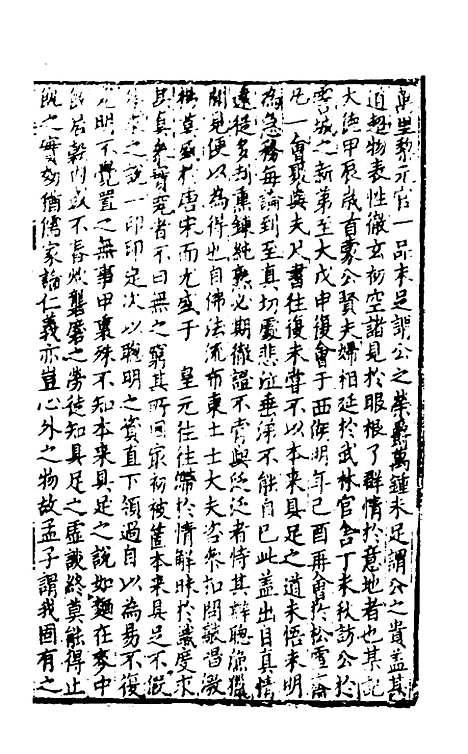 萬里黎元官一品未足謂公之榮爵萬鍾未足謂公之貴蓋其
道超物表性徹玄初空諸見於眼根了群情於意地者也某記
大德甲辰歲首蒙公賢夫婦相延於武林官舍丁未秋訪公於
雲城之新第至大戊申復會于西湖明年己酉再會於松雪齋
凡一會聚與夫尺書往復未嘗不以本來具足之道未悟未明
為急務每論到至真切處悲泣垂涕不能自已此蓋出自真情
遠從多刼熏鍊純熟必期徹證不肯與泛泛者恃其辯聰漁獵
聞見便以為得也自佛法流布東土士大夫咨參扣問敲唱激
揚莫盛於唐宋而尤盛于 皇元往往滯於情解昧於識度求
其真參實究者不曰無之窮其所因最初被箇本來具足不假
修證之說一印印定次以聰明之資直下領過自以為易不復
究明不覺置之無事甲裏殊不知本來具足之說如麵在麥中
飯居穀內以不舂炊礱磨之勞徒知具足之虛識終莫能得止
飢之實効猶儒家論仁義亦豈心外之物故孟子謂我固有之